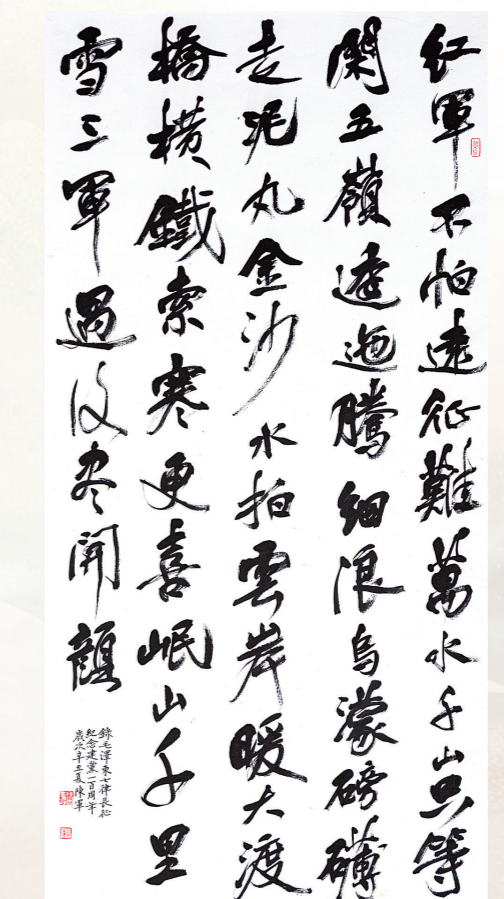 红軍不怕遠征難萬水千山只等
閑五嶺逶迤騰細浪烏濛磅礴
走泥丸金沙水拍雲崖暖大渡
橋横鐵索寒更喜岷山千里
雪三軍過後尽開顏
錄毛澤東七律長征
紀念建黨一百周年
歲次辛丑夏陳軍